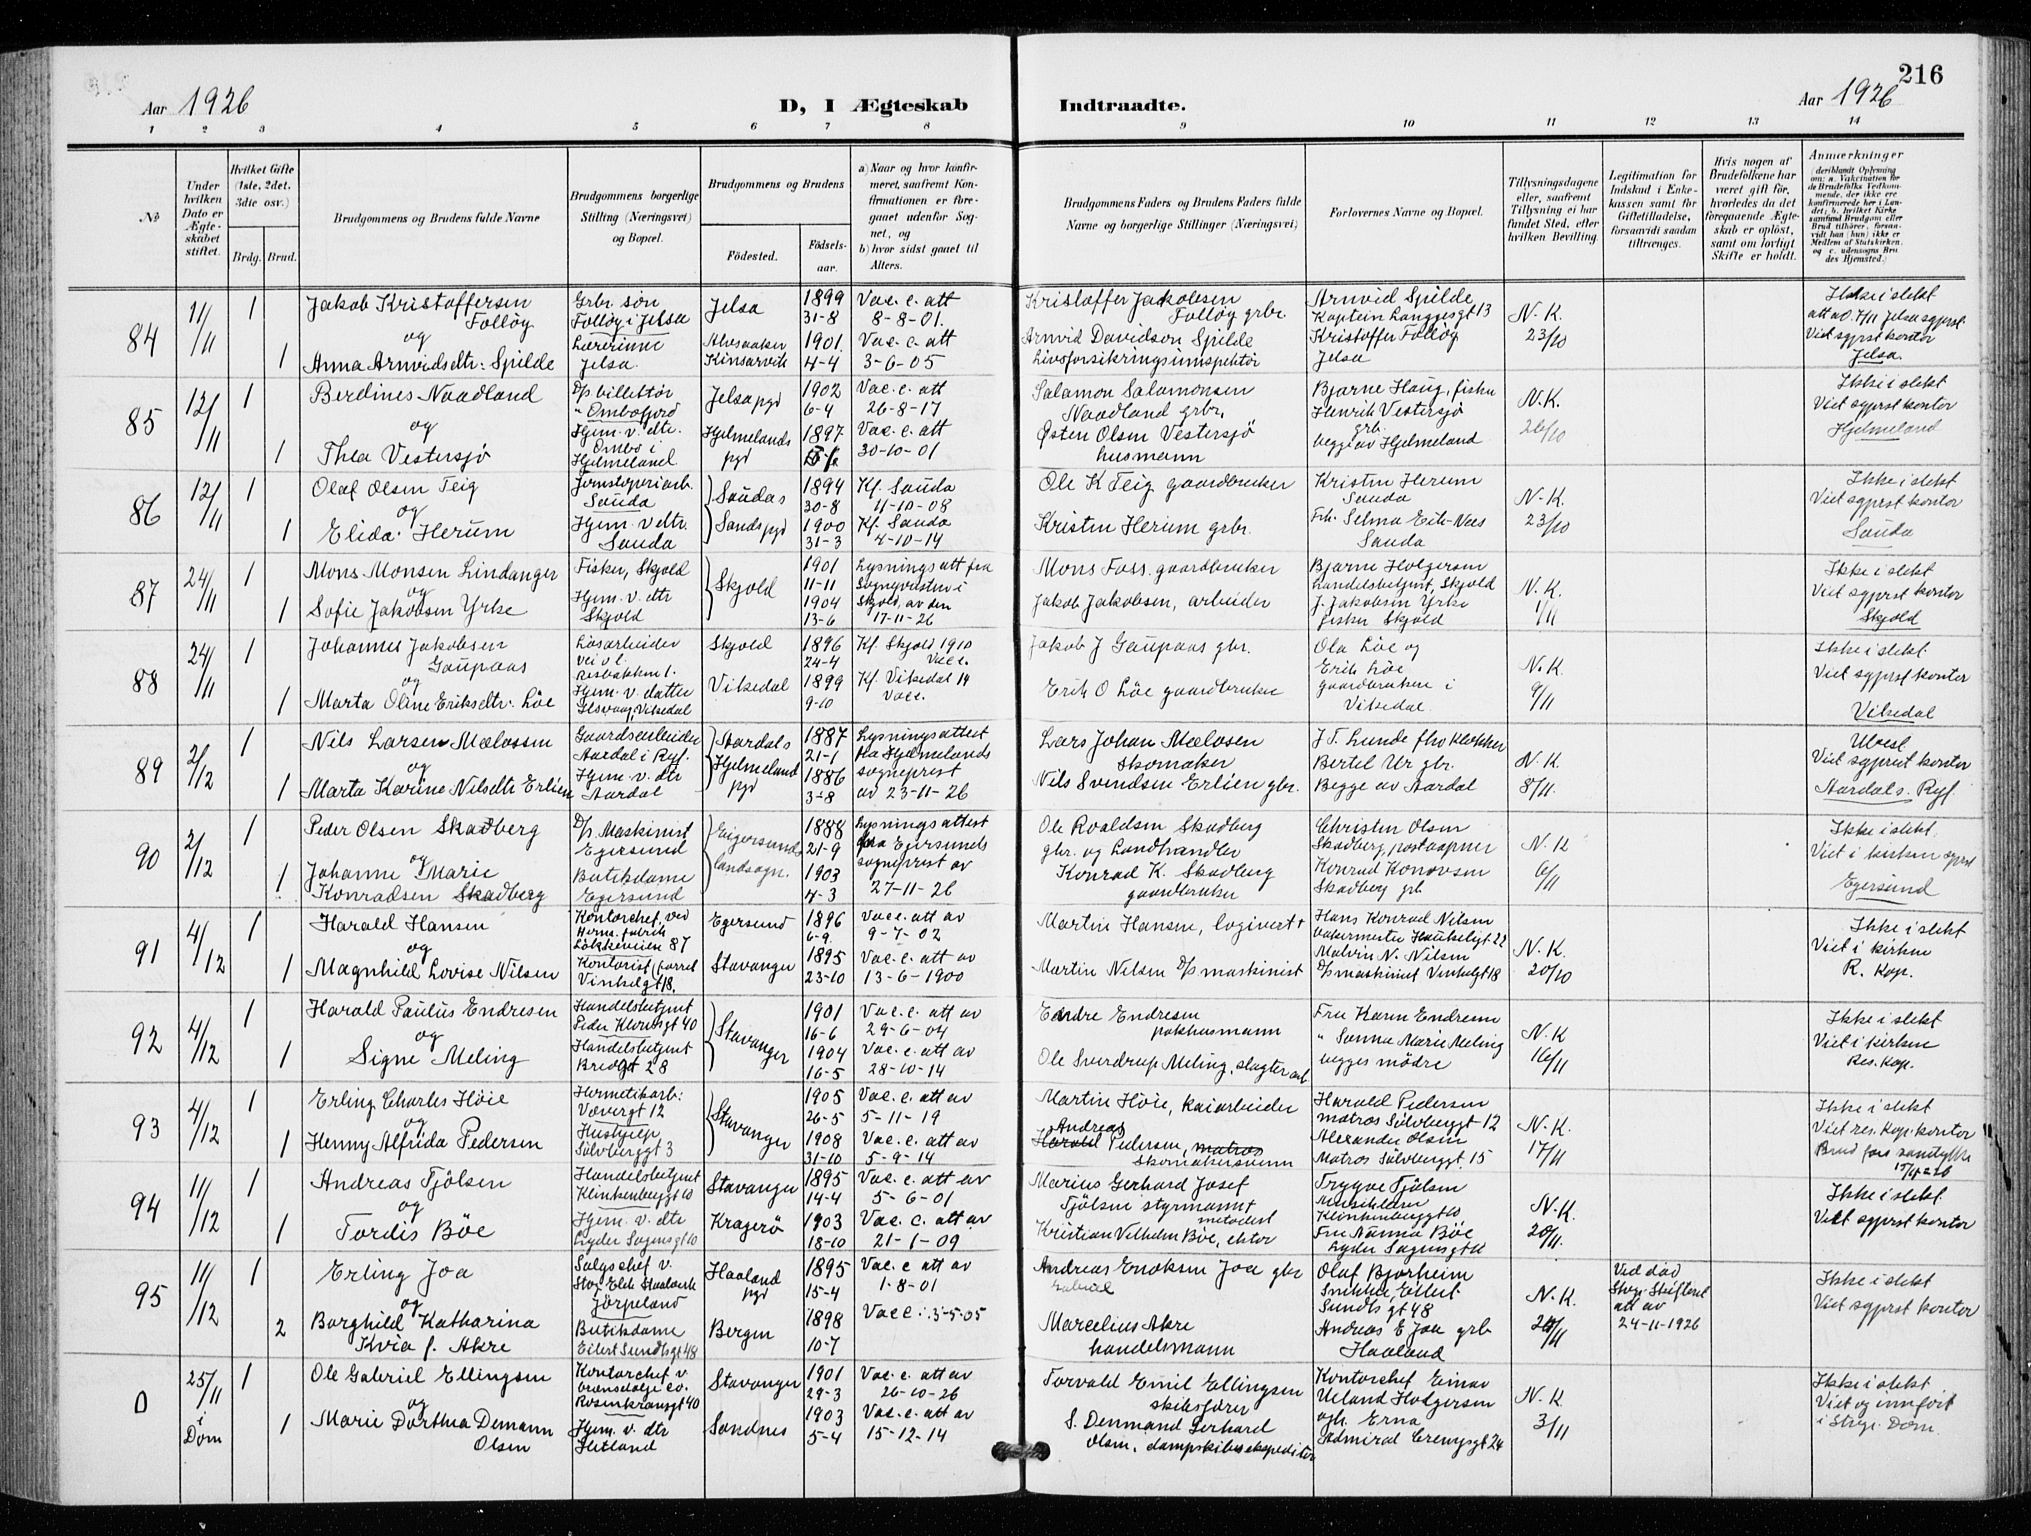 216
Aar 1926
D, I Ægteskab
Indtraadte.
Aar 1926
1 2 3 4 5 6 7 8 9 10 11 12 13 14
No
Under hvilken Dato er Ægteskabet stiftet.
Hvilket Gifte (1ste, 2det, 3die osv.)
Brdg. Brud.
Brudgommens og Brudens fulde Navne
Brudgommens borgerlige Stilling (Næringsvei) og Bopæl.
Brudgommens og Brudens
Fødested.
Fødselsaar.
a) Naar og hvor konfirmeret, saafremt Konfirmationen er foregaaet udenfor Sognet, og
b) hvor sidst gaaet til Alters.
Brudgommens Faders og Brudens Faders fulde Navne og borgerlige Stillinger (Næringsvei)
Forlovernes Navne og Bopæl.
Tillysningsdagene eller, saafremt Tillysning ei har fundet Sted, efter hvilken Bevilling.
Legitimation for Indskud i Enkekassen samt for Giftetilladelse, forsaavidt saadan tiltrænges.
Hvis nogen af Brudefolkene har været gift før, hvorledes da det foregaaende Ægteskab er opløst, samt om lovligt Skifte er holdt.
Anmerkninger
(deriblandt Oplysning om: a. Vakcination for de Brudefolks Vedkommende, der ikke ere konfirmerede her i Landet; b. hvilket Kirkesamfund Brudgom eller Brud tilhører, forsaavidt han (hun) ikke er Medlem af Statskirken, og c. udensogns Brudes Hjemsted.)
84 11/11 1 Jakob Kristoffersen Folløy
og
1 Anna Arnvidsdtr. Spilde
Grbr. søn Folløy i Jelsa
Lærerinne Jelsa.
Jelsa 1899 31-8 Vac. e. att 8-8-01.
Kinsarvik 1901 4-4 Vac. e. att 3-6-05
Kristoffer Jakobsen Folløy grbr.
Arnvid Davidson Spilde Livsforsikringsinnspektør
Arnvid Spilde Kaptein Langgesgt 13
Kristoffer Folløy Jelsa
N. K. 23/10
Ikke i slekt
att a.O. 7/11 Jelsa sgprst.
Viet sgprst kontor
Jelsa.
85 12/11 1 Berdines Naadland
og
1 Thea Vestersjø
D/s billettør "Ombofjord
Hjem. v. dtr. Ombo i Hjelmeland
Jelsa pgd 1902 6-4 Vac. e. att 26-8-17
Hjelmelands pgd 1897 Vac. e. att 30-10-01
Salamon Salamonsen Naadland grbr.
Østen Olsen Vestersjø husmann
Bjarne Haug, fisker
Henrik Vestersjø grb.
begge av Hjelmeland
N. K. 26/10
Ikke i slekt
Viet sgprst kontor
Hjelmeland
86 12/11 1 Olaf Olsen Teig
og
1 Elida Herum
Jernstøperiarb. Sauda
Hjem. v. dtr. Sauda
Saudas Sands pgd
1894 30-8 Kf. Sauda 11-10-08
1900 31-3 Kf. Sauda 4-10-14
Ole K Teig gaardbruker
Kristen Herum grbr.
Kristen Herum Sauda
Frk. Selma Erik-Nees Sauda
N. K. 23/10
Ikke i slekt
Viet sgprst kontor
Sauda
87 24/11 1 Mons Monsen Lindanger
og
1 Sofie Jakobsen Yrke
Fisker, Skjold
Hjem. v. dtr Skjold
Skjold
1901 11-11
1904 13-6
Lysningsatt fra Sognepresten i Skjold, av den 17-11-26
Mons Foss. gaardbruker
Jakob Jakobsen, arbeider
Bjarne Holgersen handelsbetjent, Skjold
J. Jakobsen Yrke fisker Skjold
N. K. 1/11
Ikke i slekt
Viet sgprst kontor
Skjold
88 24/11 1 Johannes Jakobsen Gaupaas
og
1 Marta Oline Eriksdtr. Løe
Løsarbeider
Hjem. v. datter Vikedal
Skjold 1896 24-4 Kf. Skjold 1910 Vacc.
Vikedal 1899 9-10 Kf. Vikedal 14 Vacc.
Jakob J Gaupaas gbr.
Erik O Løe gaardbruker
Ola Løe og Erik Løe gaardbrukere i Vikedal.
N. K. 9/11
Ikke i slekt
Viet sgprst kontor
Vikedal
89 2/12 1 Nils Larsen Mælassen
og
1 Marta Karine Nilsdtr Erlien
Gaardsarbeider Aardal i Ryf.
Hjem. v. dtr Aardal
Aardals Hjelmeland pgd
1887 21-1
1886 3-8
Lysningsattest fra Hjelmelands sogneprest av 23-11-26
Lars Johan Mælasen skomaker
Nils Svendsen Erlien gbr.
J. T. Lunde fhv Klokker
Bertel Ur gbr.
Begge av Aardal
N. K. 8/11.
Ubesl.
Viet sgprest kontor
Aardals. Ryf.
90 2/12 1 Peder Olsen Skadberg
og
1 Johanne Marie Konradsen Skadberg
D/s. Maskinist Egersund
Butikdame Egersund
Eigersunds landsogn.
1888 21-9
1903 4-3
Lysningsattest fra Egersunds sogneprest av 27-11-26
Ole Roaldsen Skadberg gbr. og Landhandler
Konrad K. Skadberg gaardbruker
Christen Olsen Skadberg, postaapner
Konrad Konovsen Skadberg grb.
N. K 6/11
Ikke i slekt.
Viet i kirken sgprst
Egersund
91 4/12 1 Harald Hansen
og
1 Magnhild Lovise Nilsen
Kontorchef, ved Herm. fabrik Løkkeveien 87
Kontorist Vinkelgt 18.
Egersund 1896 6-9 Vacc. att av 9-7-02
Stavanger 1895 23-10 Vac. e. att av 13-6-1900
Martin Hansen, logivert +
Martin Nilsen D/s maskinist
Hans Konrad Nilsen bakermester Haukeligt 22
Malvin N. Nilsen D/s maskinist Vinkelgt 18
N. K. 20/10
Ikke i slekt
Viet i kirken
R. Kap.
92 4/12 1 Harald Paulus Endresen
og
1 Signe Meling
Handelsbetjent Peder Klowsgt 40
Handelsbetjent Bredgt 28
Stavanger
1901 16-6 Vac. e. att av 29-6-04
1904 16-5 Vac. e. att av 28-10-14
Endre Endresen pakhusmann
Ole Sverdrup Meling, slagter arb
Fru Karen Endresen
" Sanna Marie Meling
begges mødre
N. K 16/11
Ikke i slekt
Viet i kirken
Res. Kap.
93 4/12 1 Erling Charles Høie
og
1 Henny Alfrida Pedersen
Hermetikarb: Vævergt 12
Hushjelp Sølvberggt 3
Stavanger
1905 26-5 Vac. e. att av 5-11-19
1908 31-10 Vac. e. att av 5-9-14
Martin Høie, kaiarbeider
Andreas
Harald Pedersen, matros
Skomakersvenn
Harald Pedersen matros Sølvberggt 12
Alexander Olsen Matros Sølvberggt. 15
N. K. 17/11
Ikke i slekt
Viet res. Kap. kontor
Brud fars samtykke
94 11/12 1 Andreas Tjølsen
og
1 Tordis Bøe
Handelsbetjent Klinkenberggt 10
Hjem. v. dtr Lyder Sagensgt 10
Stavanger 1895 14-4 Vac. e. att av 5-6-01
Kragerø 1903 18-10 Vac. c. att av 21-1-09
Marius Gerhard Josef Tjølsen styrmannt
metodist
Kristian Vilhelm Bøe, ektor
Trygve Tjølsen Musikkløier Klinkenberggt 10
Fru Nanna Bøe Lyder Sagensgt 10
N. K. 20/11.
Ikke i slekt
Viet sgprst kontor
95 11/12 1 Erling Joa
og
2 Borghild Katharina Kvia f. Akre
Salgschef v. Stav. Elek Staalverk Jørpeland
Butikdame Eilert Sundtsgt 48
Haaland pgd 1895 15-4 Vac. e att av 1-8-01
Bergen 1898 10-7 Vac e. 3-5-05
Andreas Enoksen Joa gbr
Gabriel
Marcelius Akre handelsmann
Olaf Bjorheim Snikker, Eilert Sundts gt 48
Andreas E Joa grb Haaland
N. K. 24/11
Ved død
Stvgr. Skifteret
att av
24-11-1926
Ikke i slekt
Viet sgprst kontor
0 25/11 i Dom 1 Ole Gabriel Ellingsen
og
1 Marie Dorthea Demann Olsen
Kontorchef v. Rosenkranzgt 40
Hjem. v. dtr Hetland
Stavanger 1901 29-3 Vac. e. att av 26-10-26
Sandnes 1903 5-4 Vac. e. att av 15-12-14
Torvald Emil Ellingsen skibsfører
S. Denmand Gerhard Olsen, dampskibsekspeditør
Kontorchef Einar Ueland Holgersen
og fr. Erna Admiral Cremersgt 24
N. K 3/11
Ikke i slekt
Viet og innført
i Stvgr. Dom.